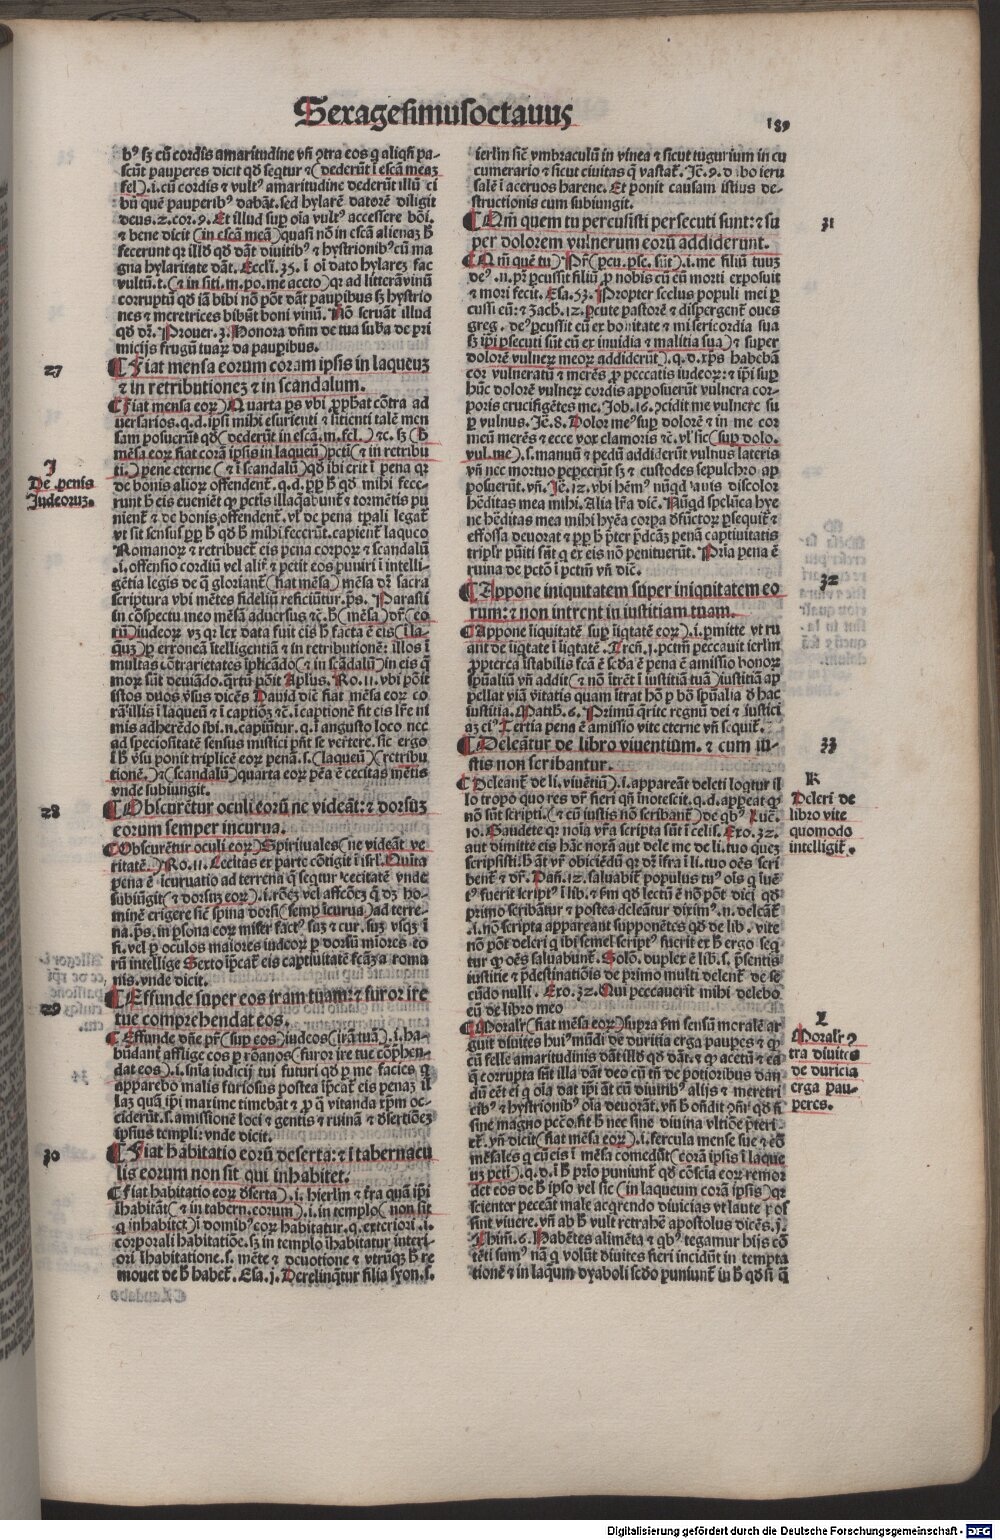 Sexagesimusoctauus
189
bꝰ sꝫ cū cordis amaritudine vñ ꝯtra eos q̇ aliqñ pa-
scūt pauperes dicit qđ seqtur ⁊ (dederūt ī escā meaꝫ
fel) .i. cū cordis ⁊ vultꝰ amaritudine dederūt illū ci
bū quē pauperibꝰ dabāt. sed hylarē datorē diligit
deus. 2. cor. 9. Et illud sup oīa vultꝰ accessere bōi.
⁊ bene dicit (in escā meā) quasi nō in escā alienaꝫ ꝫ
fecerunt qꝛ illđ qđ dāt diuitibꝰ ⁊ hystrionibꝰ cū ma
gna hylaritate dāt. Eccli. 35. ī oī dato hylareꝫ fac
vultū. t. (⁊ in siti. m. po. me aceto) qꝛ ad litterā vinū
corruptū qđ iā bibi nō pōt dāt paupibus sꝫ hystrio
nes ⁊ meretrices bibūt boni vinū. Nō seruāt illud
qđ dꝛ. Prouer. 3. Honora dñm de tua suba de pri
micijs frugū tuaꝝ da paupibus.
27
Fiat mensa eorum coram ipsis in laqueuꝫ
⁊ in retributioneꝫ ⁊ in scandalum.
(Fiat mensa eoꝝ) Quarta ps vbi ꝓphat cōtra ad
uersarios. q. d. ipsi mihi esurienti ⁊ sitienti talē men
sam posuerūt qđ (dederūt in escā. m. fel.) ⁊c. sꝫ (ħ
mēsa eoꝝ fiat corā ipsis in laqueū) pcti (⁊ in retribu
ti.) pene eterne (⁊ ī scandalū) qđ ibi erit ī pena qꝛ
de bonis alioꝝ offendent. q. d. ꝓp ħ qđ mihi fece-
J
De penis
Judeoruꝫ.
runt ħ eis eueniēt ꝙ pctis illaq̄abunt ⁊ tormētis pu
nient ⁊ de bonis offendent. vl de pena tpali legat
vt sit sensus ꝓp ħ qđ ħ mihi fecerūt. capient laqueo
Romanoꝝ ⁊ retribuet eis pena corpoꝝ ⁊ scandalū
.i. offensio cordiū vel aliř ⁊ petit eos puniri ī intelli-
gētia legis de q̄ gloriant (fiat mēsa) mēsa dꝛ sacra
scriptura vbi mētes fideliū reficiūtur. ps. Parasti
in cōspectu meo mēsā aduersus ⁊c. ħ (mēsa) dꝛ (eo
rū) iudeoꝝ vꝫ qꝛ lex data fuit eis ħ facta ē eis (ī la-
q̄uꝫ) ꝓ erroneā ītelligentiā ⁊ in retributionē: illos ī
multas cōtrarietates īplicādo (⁊ in scādalū) in eis q̄
moꝝ sūt deuiādo. q̄rtū pōit Aplus. Ro. 11. vbi pōit
istos duos v̄sus dicēs Dauid dicē fiat mēsa eoꝝ co
rā illis ī laqueū ⁊ ī captiōeꝫ ⁊c. ī captionē fit eis lr̄e ni
mis adherēdo ibi. n. capiūtur. q. ī angusto loco nec
ad speciositatē sensus mistici pn̄t se vertere. sic ergo
ī ħ v̄su ponit triplicē eoꝝ penā. s. (laqueū) (retribu
tionē.) ⁊ (scandalū) quarta eoꝝ pēa ē cecitas mētis
vnde subiungit.
28
Obscurētur oculi eorū ne videāt: ⁊ dorsuꝫ
eorum semper incurua.
(Obscurētur oculi eoꝝ) Spirituales (ne videāt ve
ritatē.) Ro. 11. Cecitas ex parte cōtigit ī isrl. Quīta
pena ē īcuruatio ad terrena q̄ sequit̄ cecitatē vnde
subiūgit (⁊ dorsuꝫ eoꝝ) .i. rōeꝫ vel affcōeꝫ q̄ dꝫ ho-
minē erigere sic̄ spina dorsi (semp īcurua) ad terre-
na. ps. in psona eoꝝ miser factꝰ suꝫ ⁊ cur. suꝫ vsqꝫ ī
fi. vel ꝑ oculos maiores iudeoꝝ ꝑ dorsū miores eo
rū intellige Sexto īpcat eis captiuitatē fcāꝫ a roma
nis. vnde dicit.
29
Effunde super eos iram tuam: ⁊ furor ire
tue comprehendat eos.
(Effunde dn̄e pr̄ (sup eos) iudeos (irā tuā) .i. ha-
būdant afflige eos ꝑ rōanos (furor ire tue cōphen-
dat eos) .i. sn̄ia iudicij tui futuri qđ ꝑ me facies q̄
apparebo malis furiosus postea īpcat eis penaꝫ il
laꝫ quā ip̄i maxime timebāt ⁊ ꝓ q̄ vitanda xp̄m oc-
ciderūt. s. amissionē loci ⁊ gentis ⁊ ruinā ⁊ dsertiōeꝫ
ipsius templi: vnde dicit.
30
Fiat habitatio eorū deserta: ⁊ ī tabernacu
lis eorum non sit qui inhabitet.
(Fiat habitatio eoꝝ dserta) .i. hierlm ⁊ tr̄a quā ip̄i
īhabitāt (⁊ in tabern. eorum) .i. in templo (non sit
q̇ inhabitet) ī domibꝰ eoꝝ habitatur. q. exteriori .i.
corporali habitatiōe. sꝫ in templo īhabitatur interi-
ori īhabitatione. s. mēte ⁊ deuotione ⁊ vtrūqꝫ ħ re
mouet de ħ habet. Esa. j. Derelinq̄tur filia syon. s.
ierlm sic̄ vmbraculū in vinea ⁊ sicut tugurium in cu
cumerario ⁊ sicut ciuitas q̄ vastat. Jē. 9. d bo ieru
salē ī aceruos harene. Et ponit causam istius de-
structionis cum subiungit.
31
Qm̄ quem tu percussisti persecuti sunt: ⁊ su
per dolorem vulnerum eorū addiderunt.
(Qm̄ quē tu) Pr̄ (pcu. psc. sūt) .i. me filiū tuuꝫ
deꝰ .n. pr̄ pcussit filiū ꝓ nobis cū eū morti exposuit
⁊ mori fecit. Esa. 53. Propter scelus populi mei p
cussi eū: ⁊ Zach. 12. Pcute pastorē ⁊ dispergent oues
greg. deꝰ pcussit eū ex bonitate ⁊ misericordia sua
sꝫ ip̄i psecuti sūt eū ex inuidia ⁊ malitia sua) ⁊ super
dolorē vulneꝝ meoꝝ addiderūt) .q. d. xp̄s habebā
cor vulneratū ⁊ merēs ꝓ peccatis iudeoꝝ: ⁊ ip̄i sup
hūc dolorē vulneꝝ cordis apposuerūt vulnera cor-
poris crucifigētes me. Job. 16. ꝯcidit me vulnere su
ꝑ vulnus. Jē. 8. Dolor meꝰ sup dolorē ⁊ in me cor
meū merēs ⁊ ecce vox clamoris ⁊c. vl sic (sup dolo.
vul. me) .s. manuū ⁊ pedū addiderūt vulnus lateris
vn̄ nec mortuo pepercūt sꝫ ⁊ custodes sepulchro ap
posuerūt. vn̄. Jē. 12. vbi hēmꝰ nūqđ auis discolor
hēditas mea mihi. Alia lr̄a dic̄. Nūqđ speluca hye
ne hēditas mea mihi hyēa corpa dfūctoꝝ psequit ⁊
effossa deuorat ⁊ ꝓp ħ pter pdcāꝫ penā captiuitatis
triplr puīti sūt q̄ ex eis nō penituerūt. Pria pena ē
ruina de pctō ī pctm vn̄ dic̄.
32
Appone iniquitatem super iniquitatem eo
rum: ⁊ non intrent in iustitiam tuam.
(Appone īiquitatē sup īiqtatē eoꝝ) .i. pmitte vt ru
ant de īiqtate ī īiqtatē. Trcn̄. j. pctm peccauit ierlm
ꝓpterea īstabilis fcā ē scđa ē pena ē amissio honoꝝ
spūaliū vn̄ addit (⁊ nō ītrēt ī iustitiā tuā) iustitiā ap
pellat viā vitatis quam ītrat hō ꝑ bō spūalia d hac
iustitia. Matth. 6. Primū q̄rite regnū dei ⁊ iustici
aꝫ eiꝰ Tertia pena ē amissio vite eterne vn̄ sequit.
33
Deleātur de libro viuentium. ⁊ cum iu-
stis non scribantur.
K
Deleri de
libro vite
quomodo
intelligit.
(Deleant de li. viuētiū) .i. appareāt deleti loqtur il
lo tropo quo res dr̄ fieri qn̄ īnotescit. q. d. appeat ꝙ
nō sūt scripti. (⁊ cū iustis nō scribant) de qbꝰ Luc.
10. Gaudete qꝛ noīa vr̄a scripta sūt ī celis. Exo. 32.
aut dimitte eis hāc noxā aut dele me de li. tuo queꝫ
scripsisti: ħ āt vr̄ obiciēdū qꝛ dꝛ īfra ī li. tuo oēs scri
bent ⁊ dr̄. Dan̄. 12. saluabit populus tuꝰ oīs q̇ īuē
tꝰ fuerit scriptꝰ ī lib. ⁊ sm̄ qđ lectū ē nō pōt dici qđ
primo scribātur ⁊ postea deleātur diximꝰ. n. deleāt
.i. nō scripta appareant supponētes qđ de lib. vite
nō pōt deleri q̇ ibi semel scriptꝰ fuerit ex ħ ergo seq
tur ꝙ oēs saluabunt. Solō. duplex ē lib. s. p̄sentis
iustitie ⁊ p̄destinatiōis de primo multi delent de se
cūdo nulli. Exo. 32. Qui peccauerit mihi delebo
eū de libro meo
L
Moralr ꝯ
tra diuites
de duricia
erga pau-
peres.
(Moralr (fiat mēsa eoꝝ) supra sm̄ sensū moralē ar
guit diuites huiꝰ mūdi de duritia erga paupes ⁊ ꝙ
cū felle amaritudinis dāt illđ qđ dāt. ⁊ ꝙ acetū ⁊ ea
q̄ corrupta sūt illa dāt deo cū tn̄ de potioribus dan
dū eēt ei q̇ oīa dat ip̄i āt cū diuitibꝰ alijs ⁊ meretri
cibꝰ ⁊ hystrionibꝰ oīa deuorāt. vn̄ ħ ondit ꝯn̄r qđ fi
sine magno pctō fit ħ nec sine diuina vltiōe pteri-
et. vn̄ dicit (fiat mēsa eoꝝ) .i. fercula mense sue ⁊ eđ
mēsales q̇ cū eis ī mēsa comedūt (corā ipsis ī laque
uꝫ peti) .q. d. ī ħ prio puniunt qđ cōscīa eoꝝ remor
det eos de ħ ipso vel sic (in laqueum corā ipsis) qꝛ
scienter peccāt male acqrendo diuicias vt laute possint viuere. vn̄ ab ħ vult retrahē apostolus dicēs. j.
Thim. 6. Habētes alimēta ⁊ qbꝰ tegamur hijs cō
tēti sumꝰ nā q̇ volūt diuites fieri incidūt in tempta
tionē ⁊ in laqum dyaboli scđo puniunt in ħ qđ fi q̄
Digitalisierung gefördert durch die Deutsche Forschungsgemeinschaft - DFG